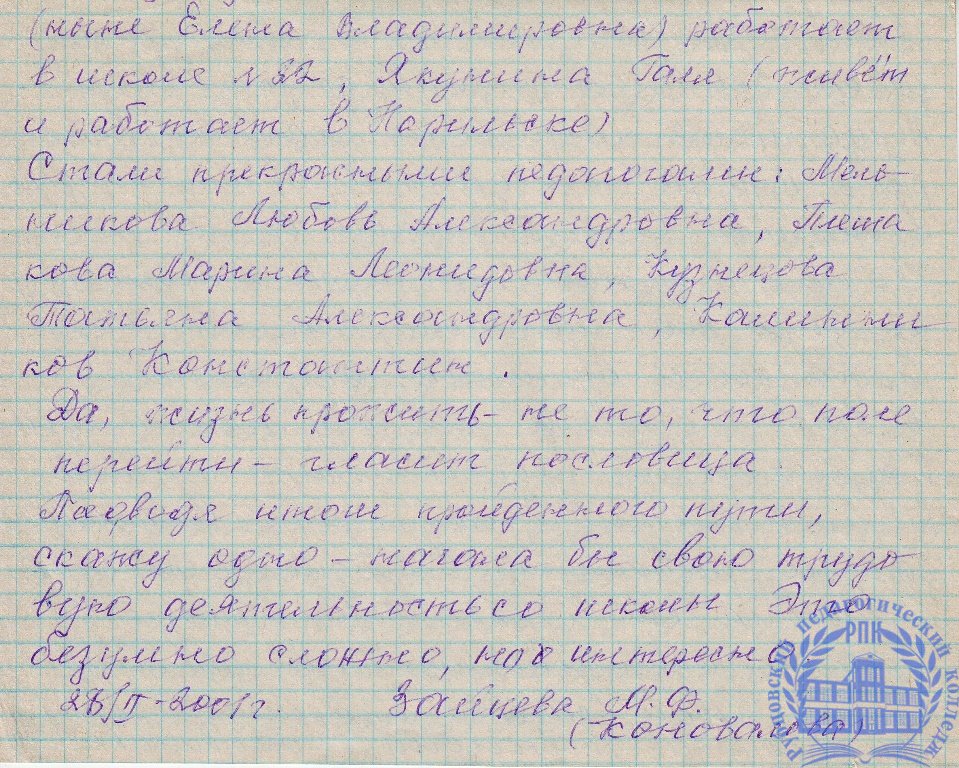 (ныне Елена Владимировна) работает
в школе №22, Якунина Галя (живёт
и работает в Норильске)
Стали прекрасными педагогами: Мель-
никова Любовь Александровна, Плеша
кова Марина Леонидовна, Кузнецова
Татьяна Александровна, Калинни
ков Константин.
Да, жизнь прожить - не то, что поле
перейти - гласит пословица.
Подводя итоги пройденного пути,
скажу одно - начала бы свою трудо
вую деятельность со школы. Это
безумно сложно, но интересно.
28/II-2001г. Зайцева М.Ф.
(Коновалова)
Рубцовский педагогический колледж
РПК